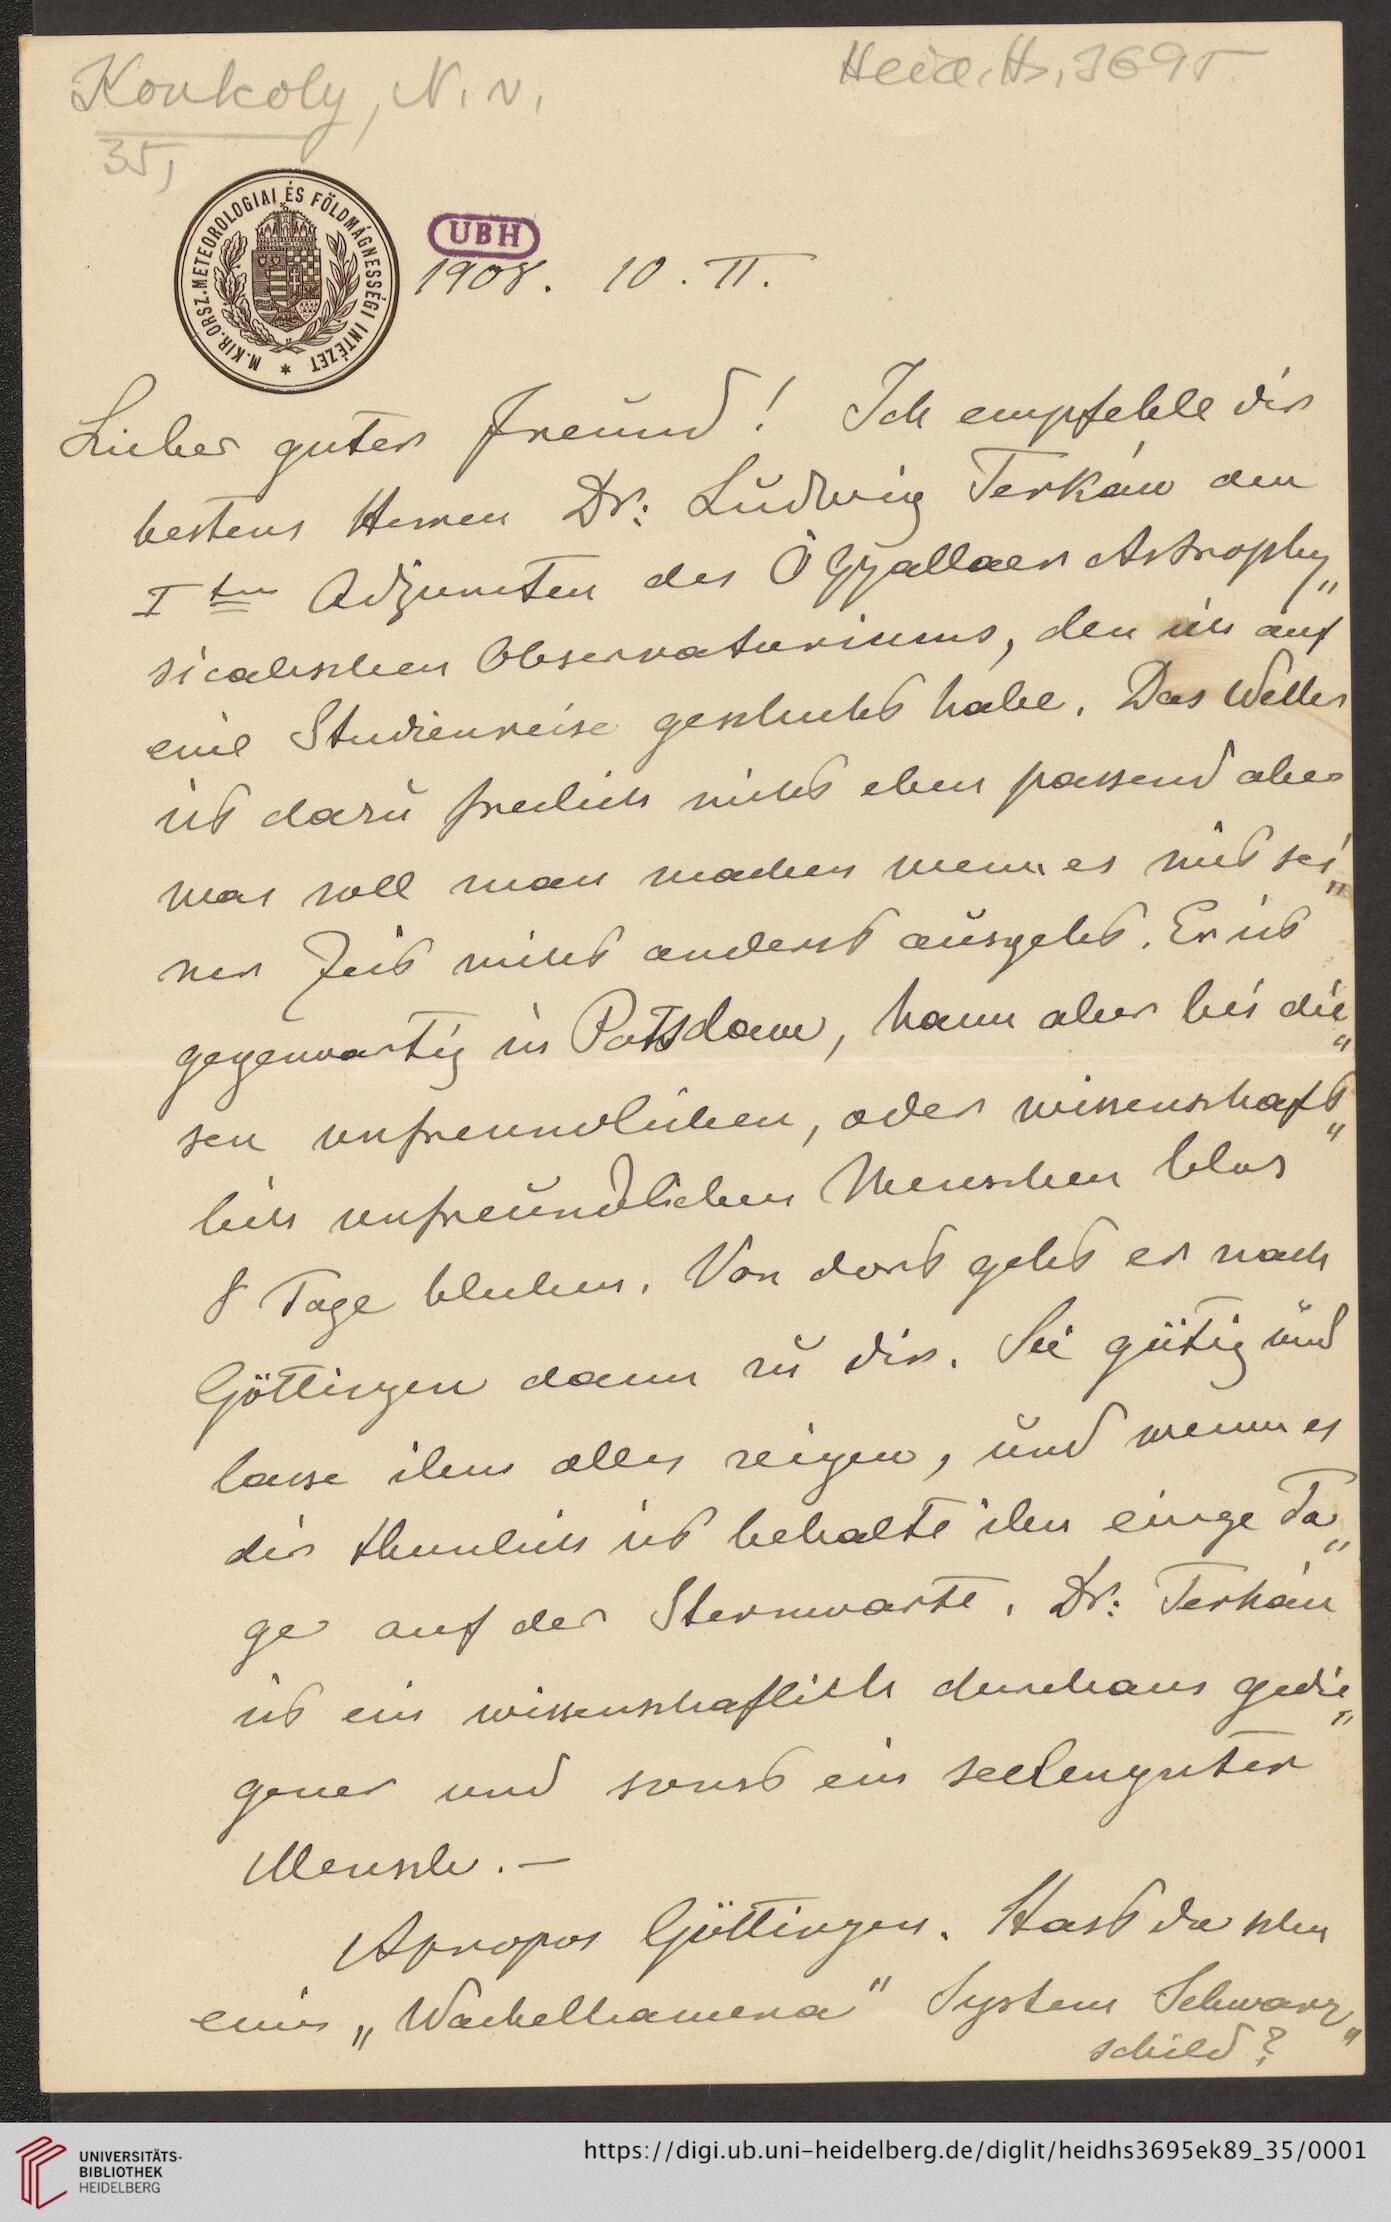 Konkoly, N. v.
Heid. Hs. 3695
35,
M. KIR. ORSZ. METEOROLOGIAI ÉS FÖLDMÁGNESSÉGI INTÉZET
UBH
1908. 10. II.
Lieber guter Freund! Ich empfehle dir
bestens Herren Dr: Ludwig Terkán den
I ten Adjuncten des Ó Gyallaer Astrophy„
sicalischen Observatoriums, den ich auf
eine Studienreise geschickt habe. Das Wetter
ist dazu freilich nicht eben passend aber
was soll man machen wenn es mit sei„
ner Zeit nicht anderst ausgeht. Er ist
gegenwartig in Potsdam, kann aber bei die„
sen unfreundlichen, oder wissenschaft„
lich unfreundlichen Menschen blos
8 Tage bleiben. Von dort geht er nach
Göttingen dann zu dir. Sei gütig und
lasse ihm alles zeigen, und wenn es
dir thunlich ist behalte ihn einge Ta„
ge auf der Sternwarte. Dr: Terkán
ist ein wissenschaflich durchaus gedie„
gener und sonst ein seelenguter
Mensch. —
Apropos Göttingen. Hast du schon
eine „Wackelkamera" System Schwarz„
schild?
UNIVERSITÄTS-
BIBLIOTHEK
HEIDELBERG
https://digi.ub.uni-heidelberg.de/diglit/heidhs3695ek89_35/0001